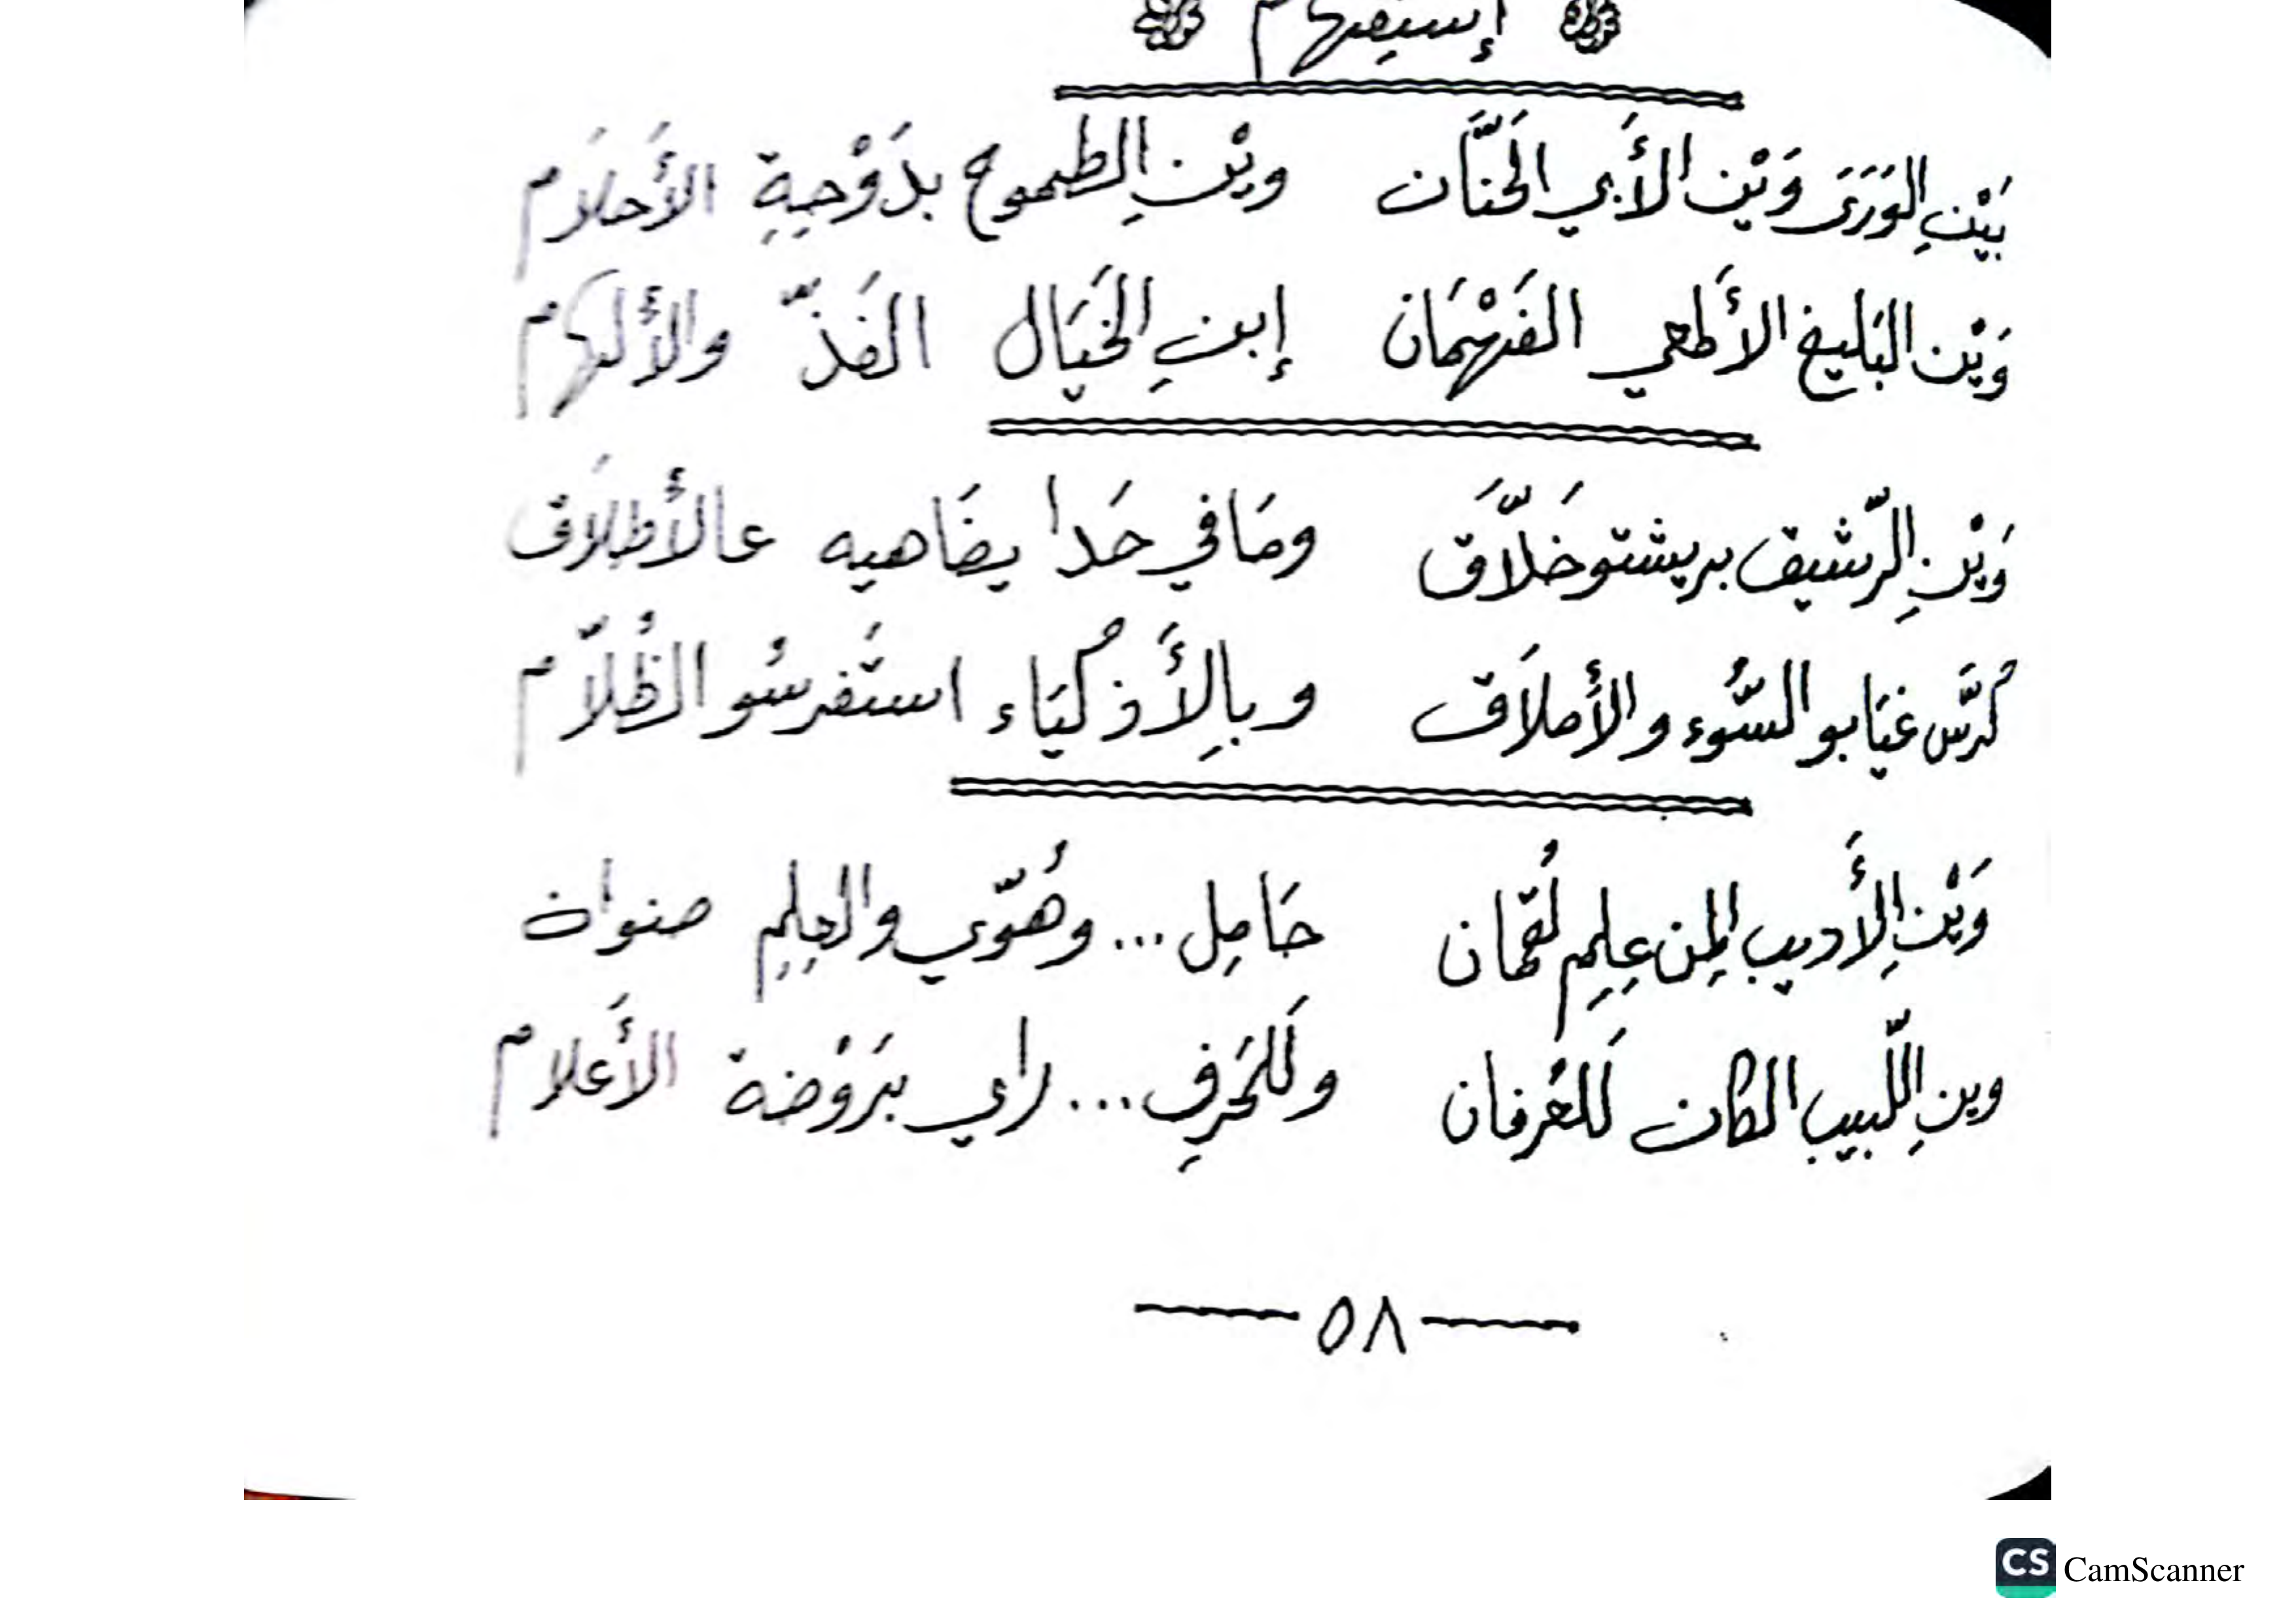 إستفهام
بَيْنِ الوَرَرَىَ وَيْن الأَبي الحَنَّان وينِ الطموح بدَوْحِةِ الأَحلَام
وَيْن البَليغ الأَلمعي الفَهْمَان إبنِ الخَيَال الفَذّ والألهام
وَيْنِ الرّشيق بريشتو خَلَّاق ومَا في حَدا يضَاهيه عالأَطلَاق
كرَّس غيَابو السُّوء والأملَاق وبِالأَذكيَاء استَفرسُو الظُلّام
وَيْنِ الأَديب المِن عِلِم لُقمَان حَامِل ... وهُوّي والعِلِم صنوان
وينِ اللّبيب الكان لَلعُرفان ولَلحَرفِ ... راي برَوْضة الأَعلام
٥٨
CS CamScanner